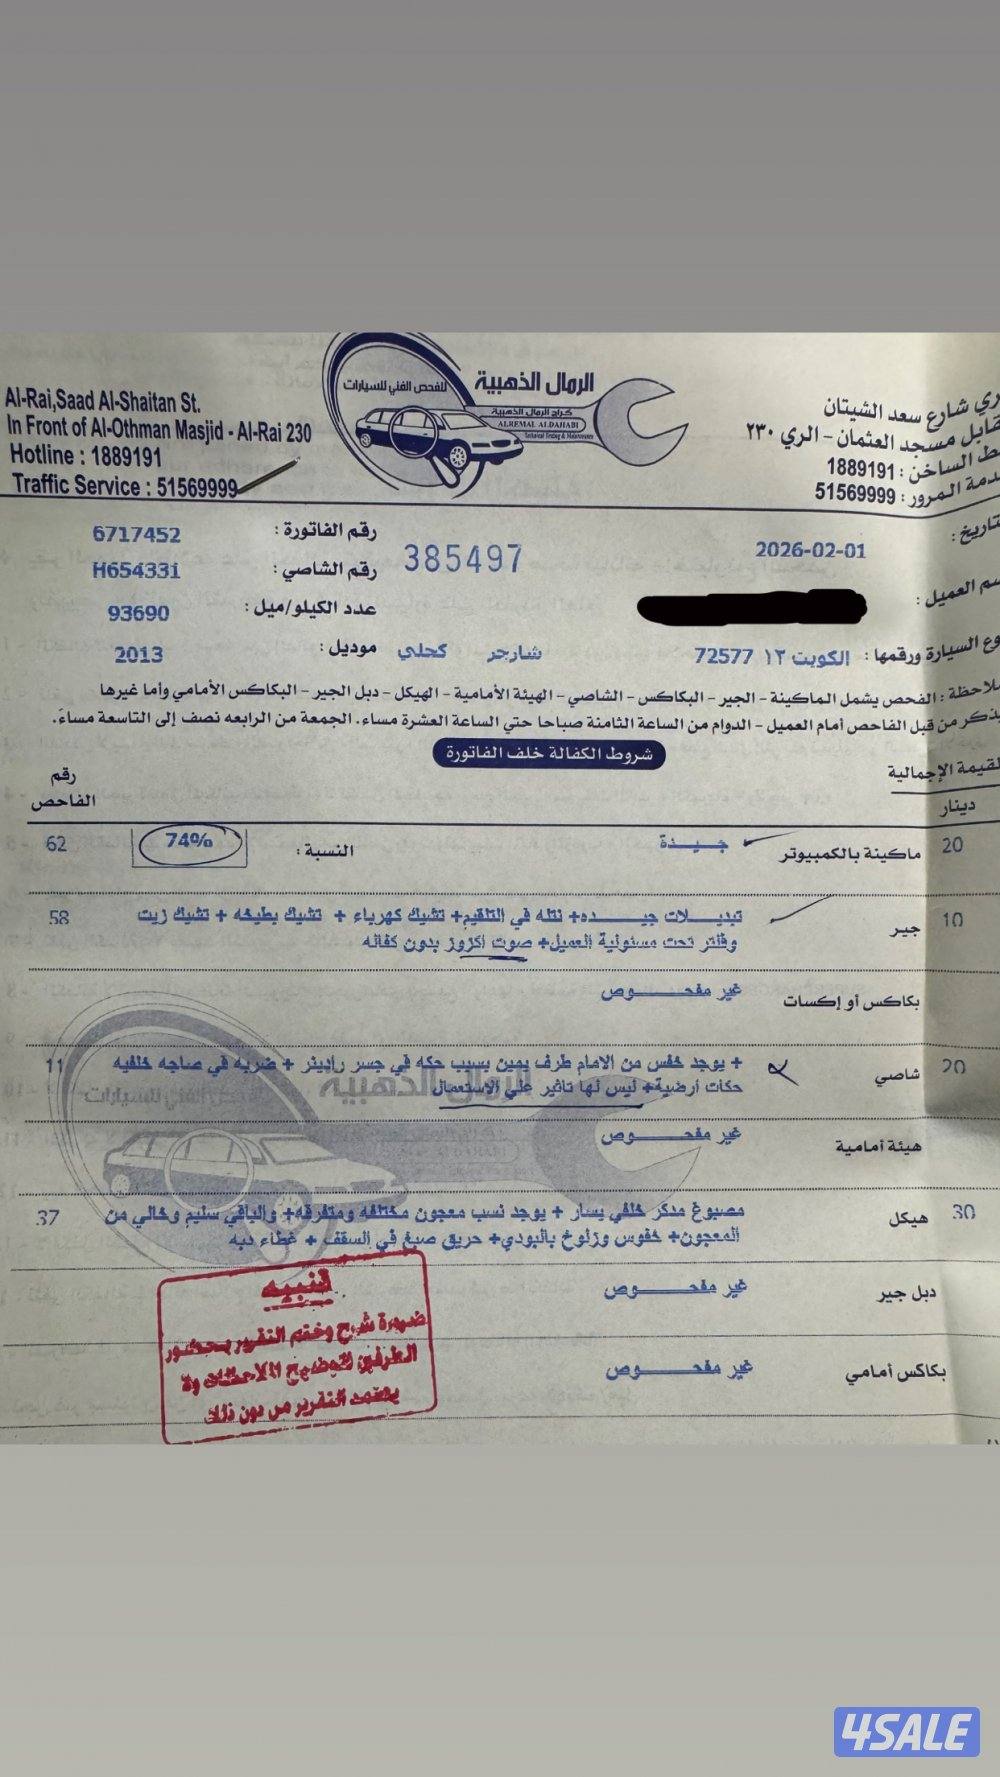 Al-Rai,Saad Al-Shaitan St.
In Front of Al-Othman Masjid - Al-Rai 230
Hotline : 1889191
Traffic Service : 51569999
الرمال الذهبية
للفحص الفني للسيارات
كراج الرمال الذهبية
ALREMAL ALDAHABI
Technical Testing & Maintenance
ري شارع سعد الشيتان
قابل مسجد العثمان - الري ٢٣٠
ط الساخن : 1889191
دمة المرور : 51569999
تاريخ : 2026-02-01
385497
رقم الفاتورة : 6717452
رقم الشاصي : H654331
سم العميل :
عدد الكيلو/ميل : 93690
وع السيارة ورقمها : الكويت ١٢ 72577 شارجر كحلي
موديل : 2013
لاحظة : الفحص يشمل الماكينة - الجير - البكاكس - الشاصي - الهيئة الأمامية - الهيكل - دبل الجير - البكاكس الأمامي وأما غيرها
يذكر من قبل الفاحص أمام العميل - الدوام من الساعة الثامنة صباحا حتي الساعة العشرة مساء. الجمعة من الرابعه نصف إلى التاسعة مساءً.
شروط الكفالة خلف الفاتورة
لقيمة الإجمالية
رقم
الفاحص
دينار
20 ماكينة بالكمبيوتر جيدة النسبة : 74% 62
10 جير تبديلات جيده+ نتله في التلقيم+ تشيك كهرباء + تشيك بطيخه + تشيك زيت 58
وفلتر تحت مسئولية العميل+ صوت اكزوز بدون كفاله
بكاكس أو إكسات غير مفحوص
20 شاصي + يوجد خفس من الامام طرف يمين بسبب حكه في جسر راديتر + ضربه في صاجه خلفيه 11
حكات أرضية+ ليس لها تاثير على الاستعمال
هيئة أمامية غير مفحوص
30 هيكل مصبوغ مدكر خلفي يسار + يوجد نسب معجون مختلفه ومتفرقه+ والباقي سليم وخالي من 37
المعجون+ خفوس وزلوخ بالبودي+ حريق صبغ في السقف + غطاء دبه
دبل جير غير مفحوص
بكاكس أمامي غير مفحوص
تنبيه
ضرورة شرح وختم التقرير بحضور
الطرفين لتوضيح الملاحظات ولا
يعتمد التقرير من دون ذلك
4SALE